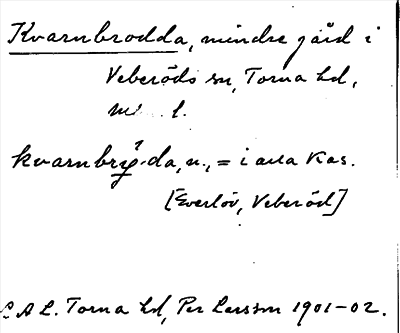 Kvarnbrodda, mindre gård i
Veberöds sn, Torna hd,
M. l.
kvarnbry·da, n., = i alla kas.
[Everlöv, Veberöd]
L.A L. Torna hd, Per Larsson 1901-02.